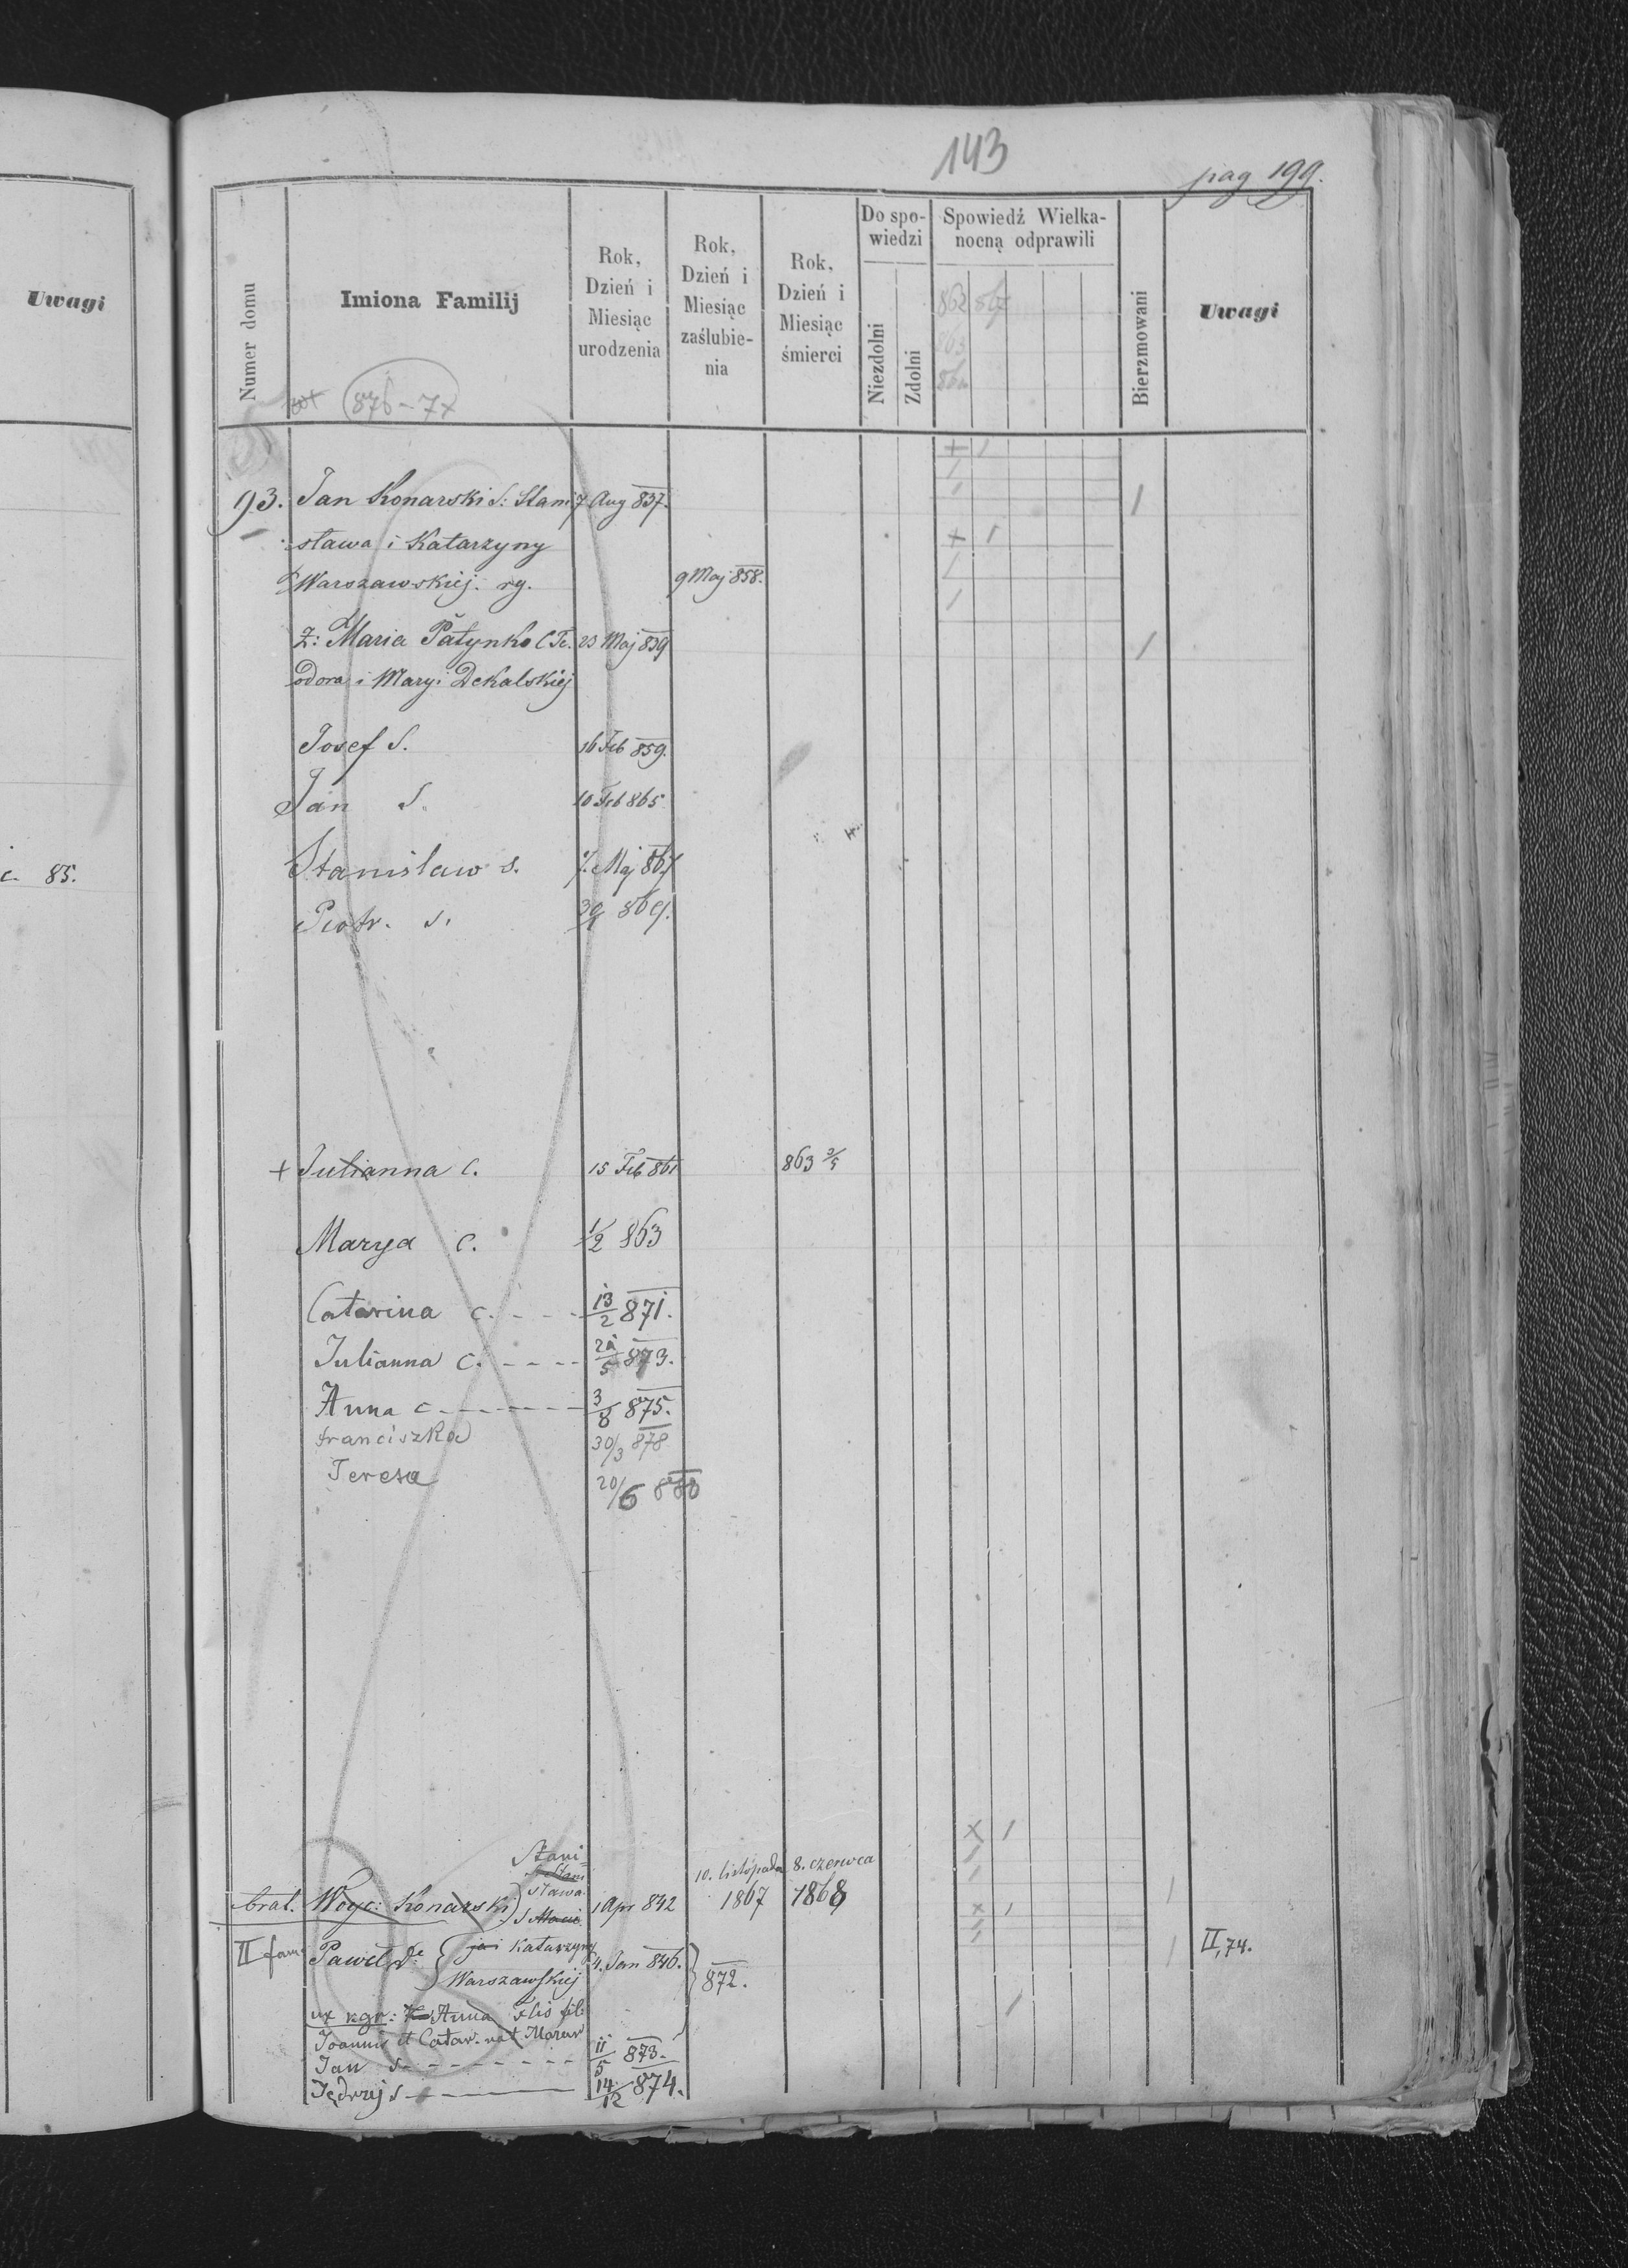 143
pag 199.
Uwagi
Numer domu
Imiona Familij
Rok, Dzień i Miesiąc urodzenia
Rok, Dzień i Miesiąc zaślubie-nia
Rok, Dzień i Miesiąc śmierci
Do spo-wiedzi
Niezdolni
Zdolni
Spowiedź Wielka-nocną odprawili
862 867
863
864
Bierzmowani
Uwagi
876 - 7+
93. Jan Konarski S: Stani 7 Aug 837. 1
sława i Katarzyny
Warszawskiej. rg. 9 Maj 858.
Ż: Maria Pałynko C Te. 23 Maj 839 1
odora i Maryi Dekalskiej
Josef S. 16 Feb 859.
Jan S. 10 Feb 865
c. 85.
Stanisław s. 7. Maj 867
Piotr. s. 869.
+ Julianna C. 15 Feb 861 863
Marya C. 1/2 863
Catarina C. - - - 13/2 871.
Julianna C. - - - - /5 873.
Anna C - - - - - - - 3/8 875.
Franciszka 30/3 878
Teresa 20/6 880
Stani=
sława
brat. Woyc: Konarski 1 Apr 842 10. listopada 1867 8. czerwca 1868
II fam. Paweł i Katarzyny 4. Jan 846. II, 74.
Warszawskiej 872.
ux rgr: Anna fil:
Joannis et Catar. nat.
Jan s - - - - - - - 11/5 873.
Jędrzej s - - - 14/12 874.